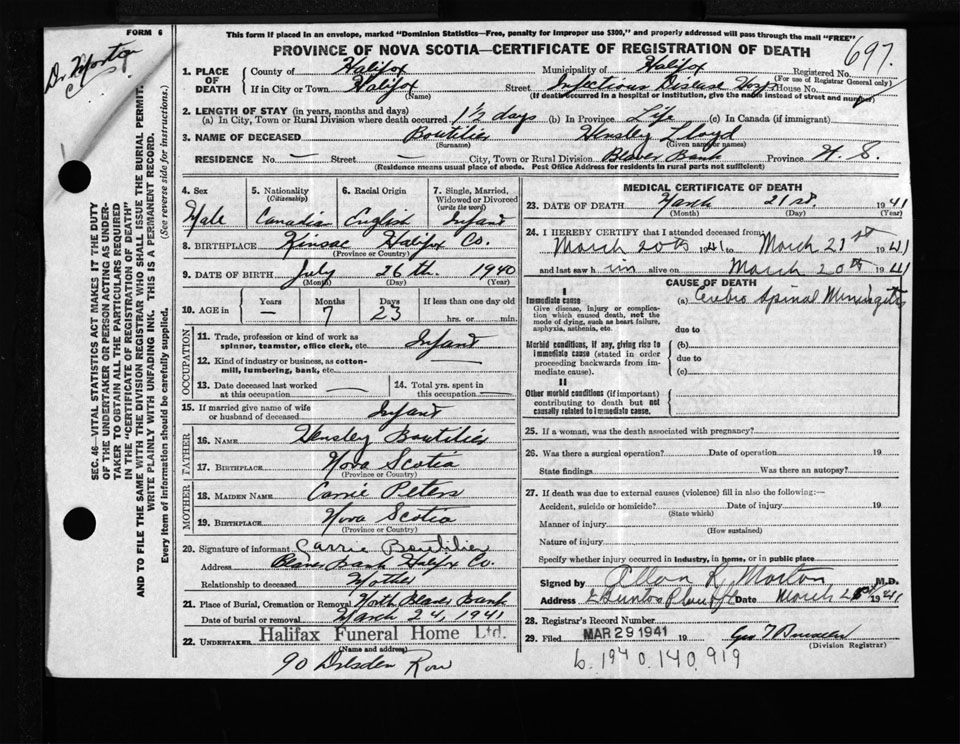 FORM 6
This form if placed in an envelope, marked "Dominion Statistics—Free, penalty for improper use $300," and properly addressed will pass through the mail "FREE"
PROVINCE OF NOVA SCOTIA—CERTIFICATE OF REGISTRATION OF DEATH
697.
Dr Morton
1. PLACE OF DEATH
County of Halifax Municipality of Halifax Registered No.
(For use of Registrar General only)
If in City or Town Halifax Street Infectious Disease Hosp House No.
(Name) (If death occurred in a hospital or institution, give the name instead of street and number)
2. LENGTH OF STAY (in years, months and days)
(a) In City, Town or Rural Division where death occurred 1½ days (b) In Province Life (c) In Canada (if immigrant)
3. NAME OF DECEASED Boutilier Hensley Lloyd
(Surname) (Given name or names)
RESIDENCE No. — Street — City, Town or Rural Division Beaver Bank Province N. S.
(Residence means usual place of abode. Post Office Address for residents in rural parts not sufficient)
SEC. 46—VITAL STATISTICS ACT MAKES IT THE DUTY
OF THE UNDERTAKER OR PERSON ACTING AS UNDER-
TAKER TO OBTAIN ALL THE PARTICULARS REQUIRED
IN THE "CERTIFICATE OF REGISTRATION OF DEATH"
AND TO FILE THE SAME WITH THE DIVISION REGISTRAR WHO SHALL ISSUE THE BURIAL PERMIT.
WRITE PLAINLY WITH UNFADING INK. THIS IS A PERMANENT RECORD.
Every item of information should be carefully supplied. (See reverse side for instructions.)
4. Sex Male
5. Nationality (Citizenship) Canadia
6. Racial Origin English
7. Single, Married, Widowed or Divorced (write the word) Infant
8. BIRTHPLACE Kinsac Halifax Co.
(Province or Country)
9. DATE OF BIRTH July 26th. 1940
(Month) (Day) (Year)
10. AGE in Years — Months 7 Days 23 If less than one day old hrs. or min.
OCCUPATION
11. Trade, profession or kind of work as spinner, teamster, office clerk, etc. Infant
12. Kind of industry or business, as cotton-mill, lumbering, bank, etc. —
13. Date deceased last worked at this occupation —
14. Total yrs. spent in this occupation —
15. If married give name of wife or husband of deceased Infant
FATHER
16. NAME Hensley Boutilier
17. BIRTHPLACE Nova Scotia
(Province or Country)
MOTHER
18. MAIDEN NAME Carrie Peters
19. BIRTHPLACE Nova Scotia
(Province or Country)
20. Signature of informant Carrie Boutilier
Address Beaver Bank Halifax Co.
Relationship to deceased Mother
21. Place of Burial, Cremation or Removal North Beaver Bank
Date of burial or removal March 24, 1941
22. UNDERTAKER Halifax Funeral Home Ltd.
(Name and address)
90 Dresden Row
MEDICAL CERTIFICATE OF DEATH
23. DATE OF DEATH March 21st. 1941
(Month) (Day) (Year)
24. I HEREBY CERTIFY that I attended deceased from
March 20th 1941 to March 21st 1941
and last saw him alive on March 20th 1941
CAUSE OF DEATH
I
Immediate cause (a) Cerebro Spinal Meningitis
Give disease, injury or complication which caused death, not the mode of dying, such as heart failure, asphyxia, asthenia, etc.
due to
Morbid conditions, if any, giving rise to immediate cause (stated in order proceeding backwards from immediate cause).
(b)
due to
(c)
II
Other morbid conditions (if important) contributing to death but not causally related to immediate cause.
25. If a woman, was the death associated with pregnancy?
26. Was there a surgical operation? Date of operation 19
State findings Was there an autopsy?
27. If death was due to external causes (violence) fill in also the following:—
Accident, suicide or homicide? Date of injury 19
(State which)
Manner of injury
(How sustained)
Nature of injury
Specify whether injury occurred in industry, in home, or in public place
Signed by Allan R. Morton M.D.
Address Date March 21st 1941
28. Registrar's Record Number
29. Filed MAR 29 1941 19
(Division Registrar)
b. 1940. 140, 919